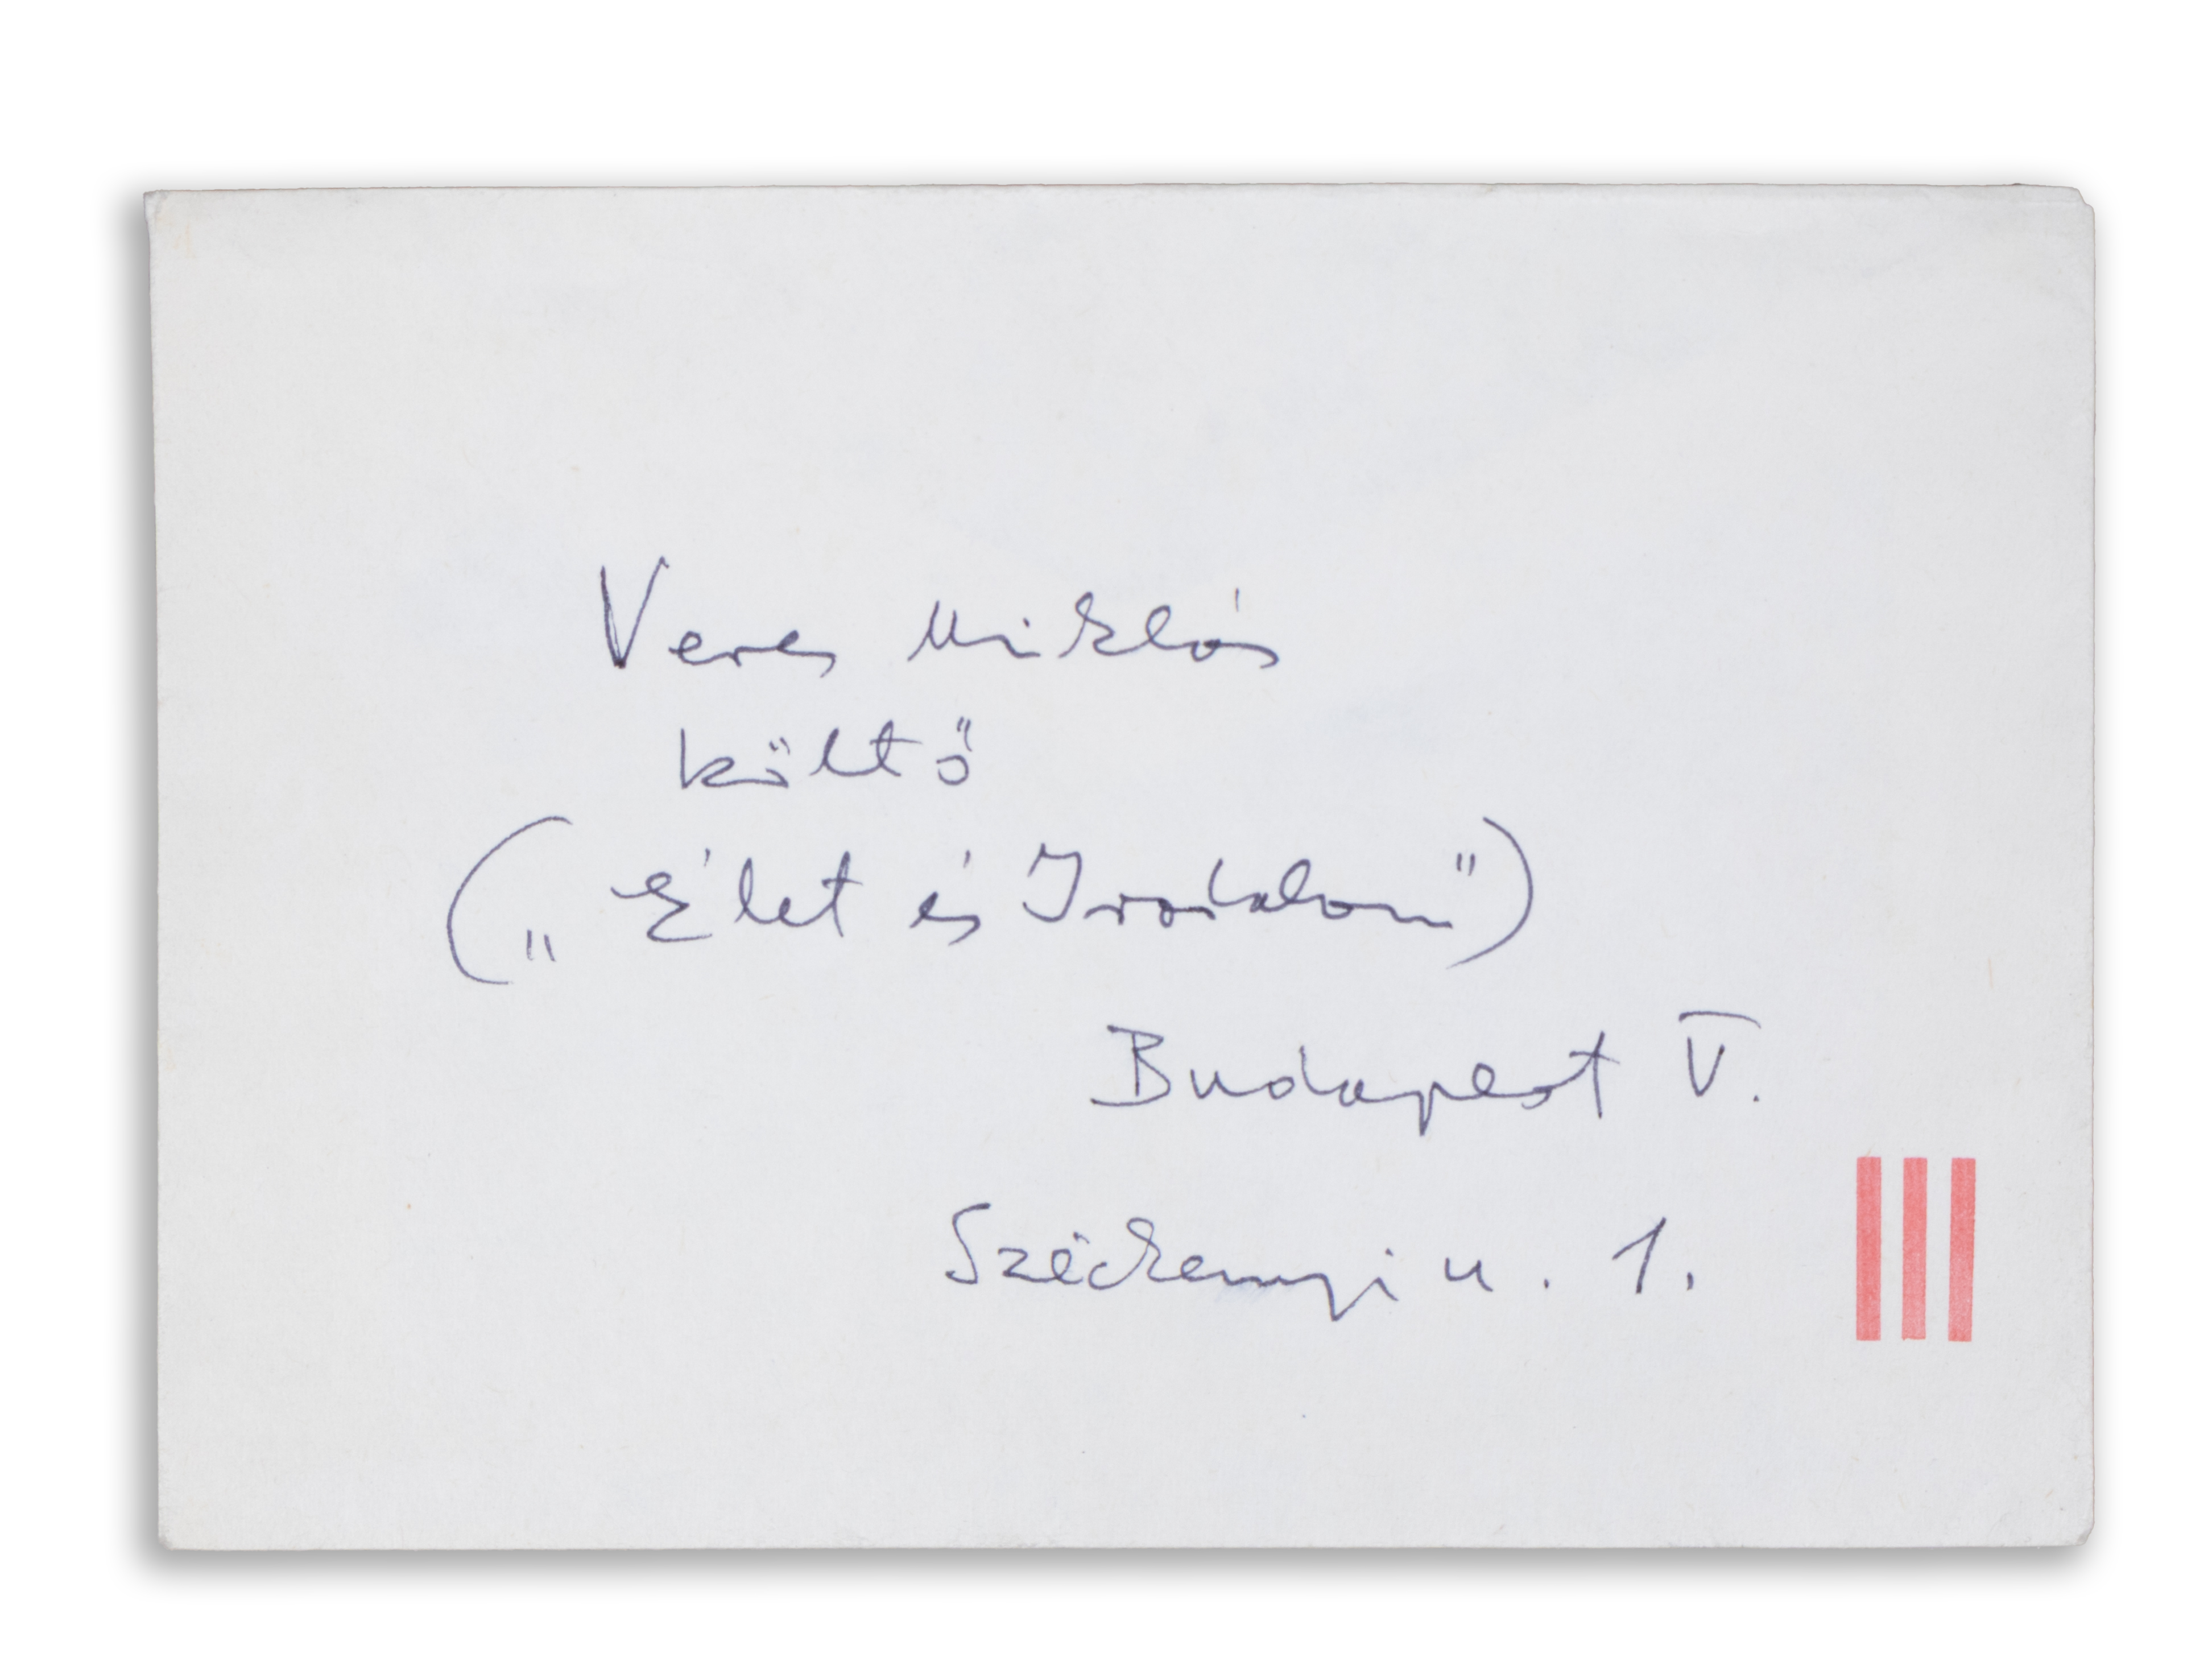 Veres Miklós
költő
(„Élet és Irodalom")
Budapest V.
Széchenyi u. 1.